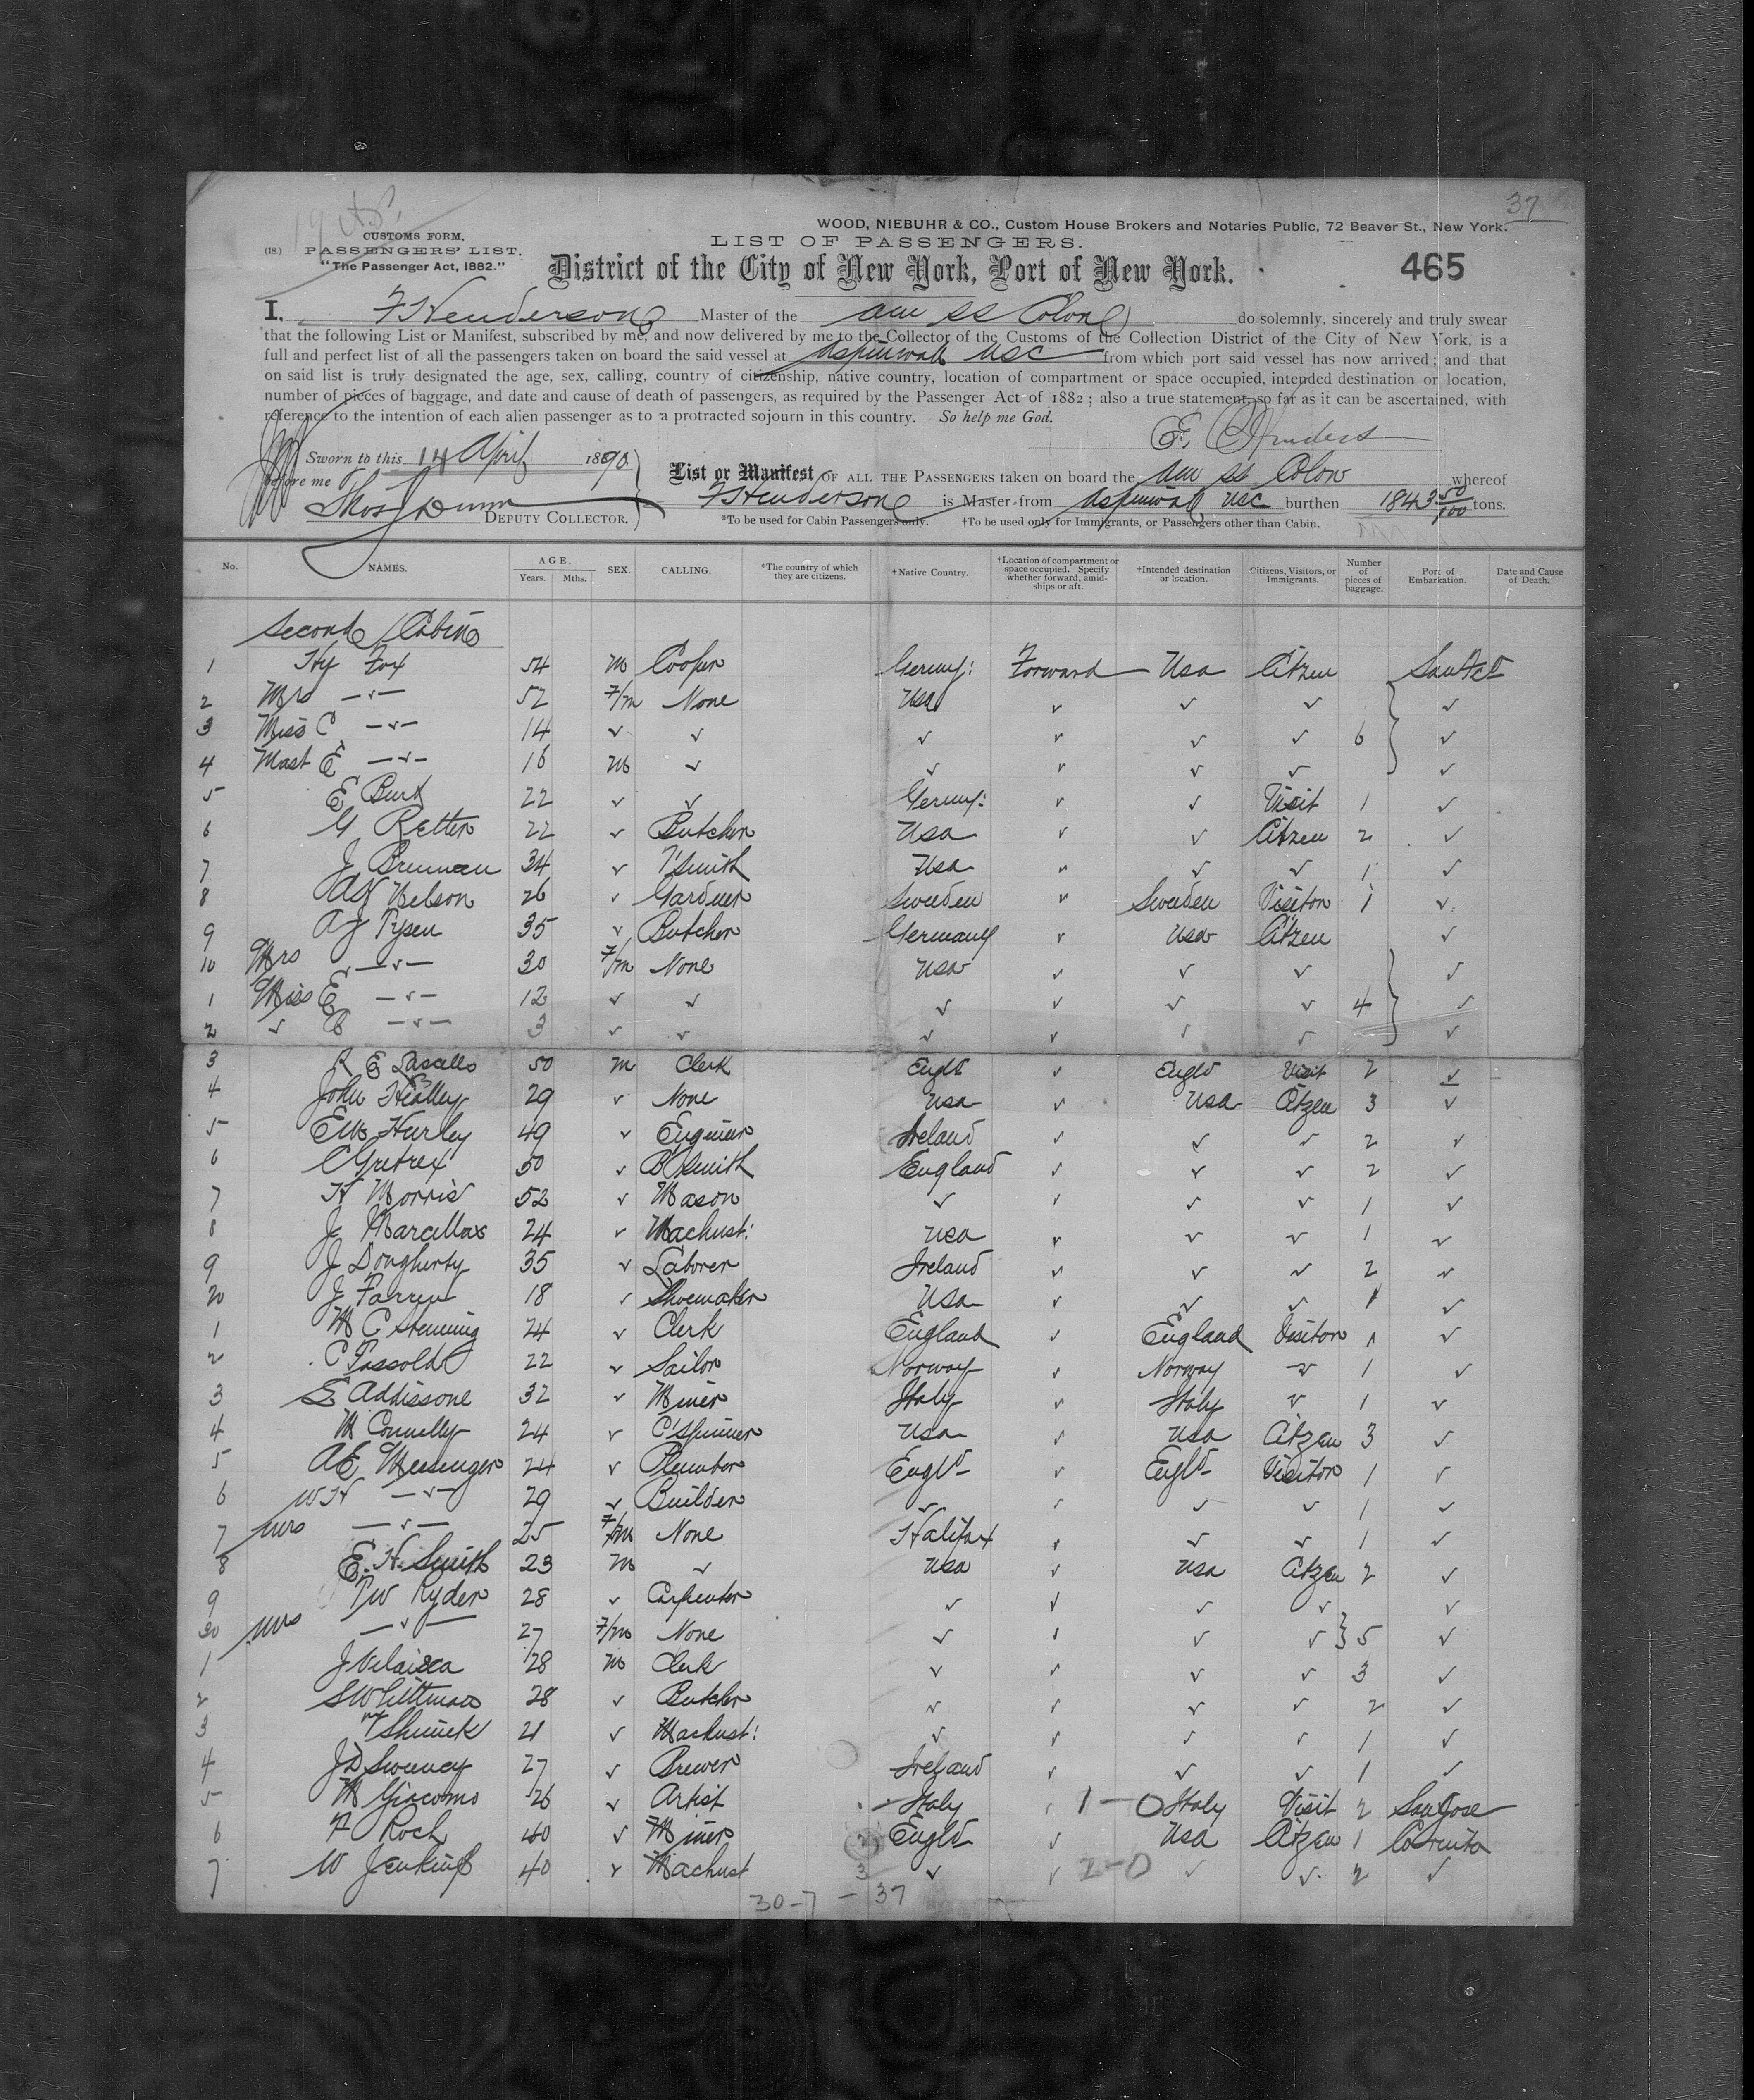 37
WOOD, NIEBUHR & CO., Custom House Brokers and Notaries Public, 72 Beaver St., New York.
(18.) CUSTOMS FORM,
PASSENGERS' LIST.
"The Passenger Act, 1882."
LIST OF PASSENGERS.
District of the City of New York, Port of New York.
465
I. F Henderson Master of the Am SS Colon do solemnly, sincerely and truly swear
that the following List or Manifest, subscribed by me, and now delivered by me to the Collector of the Customs of the Collection District of the City of New York, is a
full and perfect list of all the passengers taken on board the said vessel at Aspinwall USC from which port said vessel has now arrived; and that
on said list is truly designated the age, sex, calling, country of citizenship, native country, location of compartment or space occupied, intended destination or location,
number of pieces of baggage, and date and cause of death of passengers, as required by the Passenger Act of 1882; also a true statement, so far as it can be ascertained, with
reference to the intention of each alien passenger as to a protracted sojourn in this country. So help me God.
Sworn to this 14 April 1890
before me
Thos Dunn
DEPUTY COLLECTOR.
List or Manifest OF ALL THE PASSENGERS taken on board the Am SS Colon whereof
F Henderson is Master from Aspinwall USC burthen 1843 50/100 tons.
*To be used for Cabin Passengers only. †To be used only for Immigrants, or Passengers other than Cabin.
No. NAMES. AGE. Years. Mths. SEX. CALLING. *The country of which they are citizens. †Native Country. †Location of compartment or space occupied. Specify whether forward, amidships or aft. †Intended destination or location. Citizens, Visitors, or Immigrants. Number of pieces of baggage. Port of Embarkation. Date and Cause of Death.
Second Cabin
1 Hy Fox 54 M Cooper Germy: Forward Usa Citzen
2 Mrs -〃- 52 F/m None Usa ✓ ✓ ✓ ✓
3 Miss C -〃- 14 ✓ ✓ ✓ ✓ ✓ ✓ 6 ✓
4 Mast E -〃- 16 M ✓ ✓ ✓ ✓ ✓ ✓
5 E Burt 22 ✓ ✓ Germy: ✓ ✓ Visit 1 ✓
6 G Retter 22 ✓ Butcher Usa ✓ ✓ Citzen 2 ✓
7 J Brennan 34 ✓ T'Smith Usa ✓ ✓ ✓ 1 ✓
8 Nelson 26 ✓ Gardner Sweeden ✓ Sweeden Visitor 1 ✓
9 A J Tysen 35 ✓ Butcher Germany ✓ Usa Citzen ✓
10 Mrs -〃- 30 F/m None Usa ✓ ✓ ✓ ✓
1 Miss E -〃- 12 ✓ ✓ ✓ ✓ ✓ ✓ 4 ✓
2 ✓ -〃- 3 ✓ ✓ ✓ ✓ ✓ ✓ ✓
3 R E Lascelles 50 M Clerk Engld ✓ Engld Visit 2 ✓
4 John Healley 29 ✓ None Usa ✓ Usa Citzen 3 ✓
5 Hurley 49 ✓ Engineer Ireland ✓ ✓ ✓ 2 ✓
6 C Gretrex 50 ✓ B'Smith England ✓ ✓ ✓ 2 ✓
7 H Morris 52 ✓ Mason ✓ ✓ ✓ ✓ 1 ✓
8 J Marcellas 24 ✓ Machust: Usa ✓ ✓ ✓ 1 ✓
9 J Dougherty 35 ✓ Laborer Ireland ✓ ✓ ✓ 2 ✓
20 J Farren 18 ✓ Shoemaker Usa ✓ ✓ ✓ 1 ✓
1 M C Stenning 24 ✓ Clerk England ✓ England Visitor 1 ✓
2 C Fassold 22 ✓ Sailor Norway ✓ Norway ✓ 1 ✓
3 Addissone 32 ✓ Miner Italy ✓ Italy ✓ 1 ✓
4 M Connelly 24 ✓ C'Spinner Usa ✓ Usa Citzen 3 ✓
5 A E Messenger 24 ✓ Plumber Engld ✓ Engld Visitor 1 ✓
6 W H -〃- 29 ✓ Builder ✓ ✓ ✓ ✓ 1 ✓
7 Mrs -〃- 25 F/m None Halifax ✓ ✓ ✓ 1 ✓
8 E. H. Smith 23 M ✓ Usa ✓ Usa Citzen 2 ✓
9 Ryder 28 ✓ Carpenter ✓ ✓ ✓ ✓ ✓
30 Mrs -〃- 27 F/m None ✓ ✓ ✓ ✓ 5 ✓
1 28 M Clerk ✓ ✓ ✓ ✓ 3 ✓
2 28 ✓ Butcher ✓ ✓ ✓ ✓ 2 ✓
3 21 ✓ Machust: ✓ ✓ ✓ ✓ 1 ✓
4 J D Sweeney 27 ✓ Brewer Ireland ✓ ✓ ✓ 1 ✓
5 M Giacomo 26 ✓ Artist Italy ✓ 1-0 Italy Visit 2 San Jose
6 F Roch 40 ✓ Miner Engld ✓ Usa Citzen 1
7 W Jenkins 40 ✓ Machust ✓ ✓ 2-0 ✓ ✓ 2 ✓
30-7 - 37